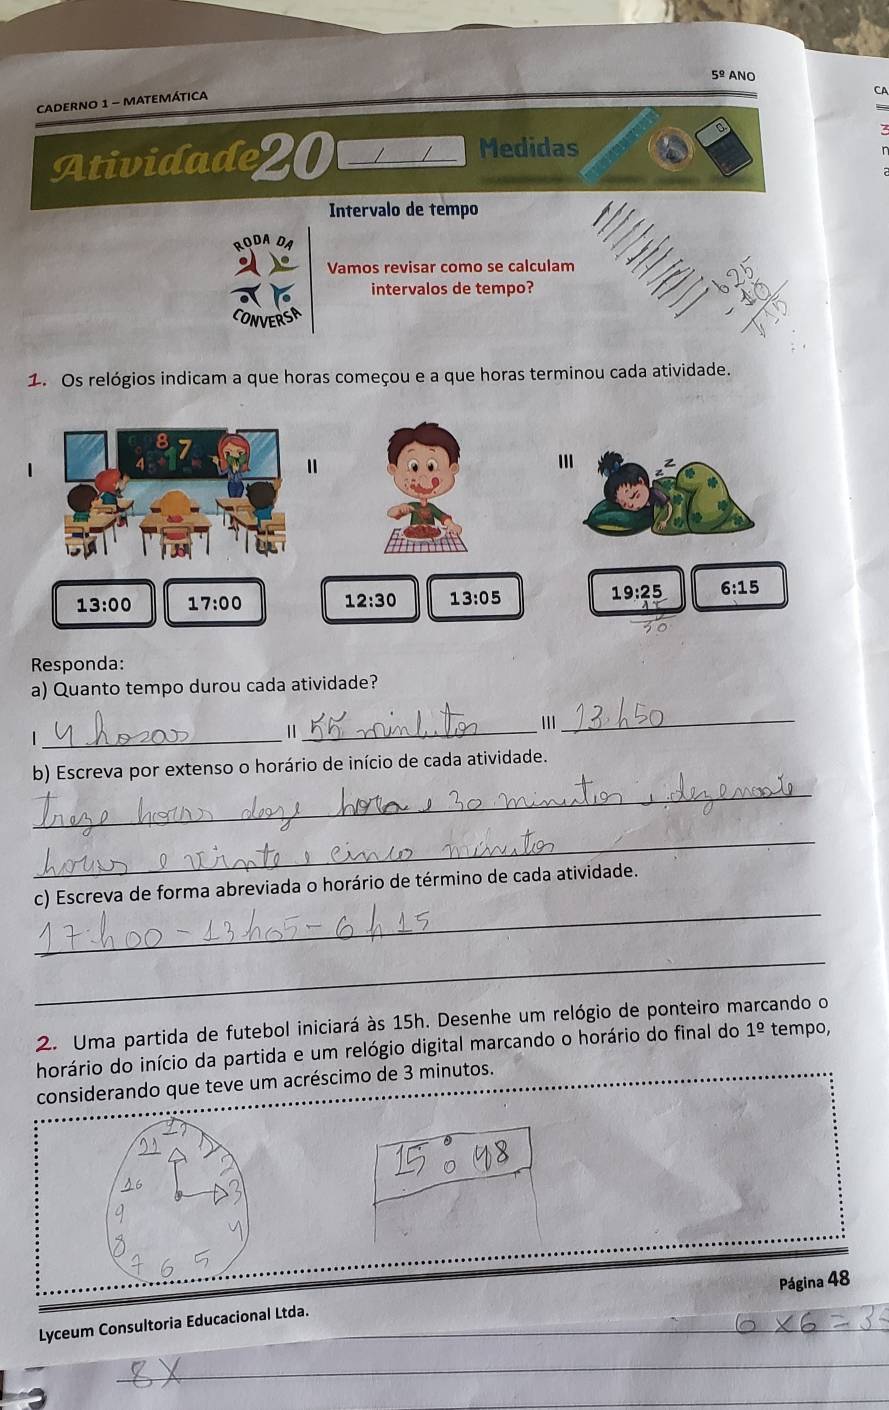 5º ANO
CADERNO 1 – MATEMÁTICA
CA
Atividade 20 / / Medidas
Intervalo de tempo
RODA DA
CONVERSA
Vamos revisar como se calculam
intervalos de tempo?
625
1. Os relógios indicam a que horas começou e a que horas terminou cada atividade.
I II III
13:00 17:00 12:30 13:05 19:25 6:15
15
30
Responda:
a) Quanto tempo durou cada atividade?
I 4 horas II 55 minutos III 13h50
b) Escreva por extenso o horário de início de cada atividade.
treze horas doze hora e 30 minutos e dezenove
horas e vinte e cinco minutos
c) Escreva de forma abreviada o horário de término de cada atividade.
17:h00 - 13h05 - 6h15
2. Uma partida de futebol iniciará às 15h. Desenhe um relógio de ponteiro marcando o
horário do início da partida e um relógio digital marcando o horário do final do 1º tempo,
considerando que teve um acréscimo de 3 minutos.
15:48
3
9
4
8
7 6 5
Página 48
Lyceum Consultoria Educacional Ltda.
6 x 6 = 3
8 X